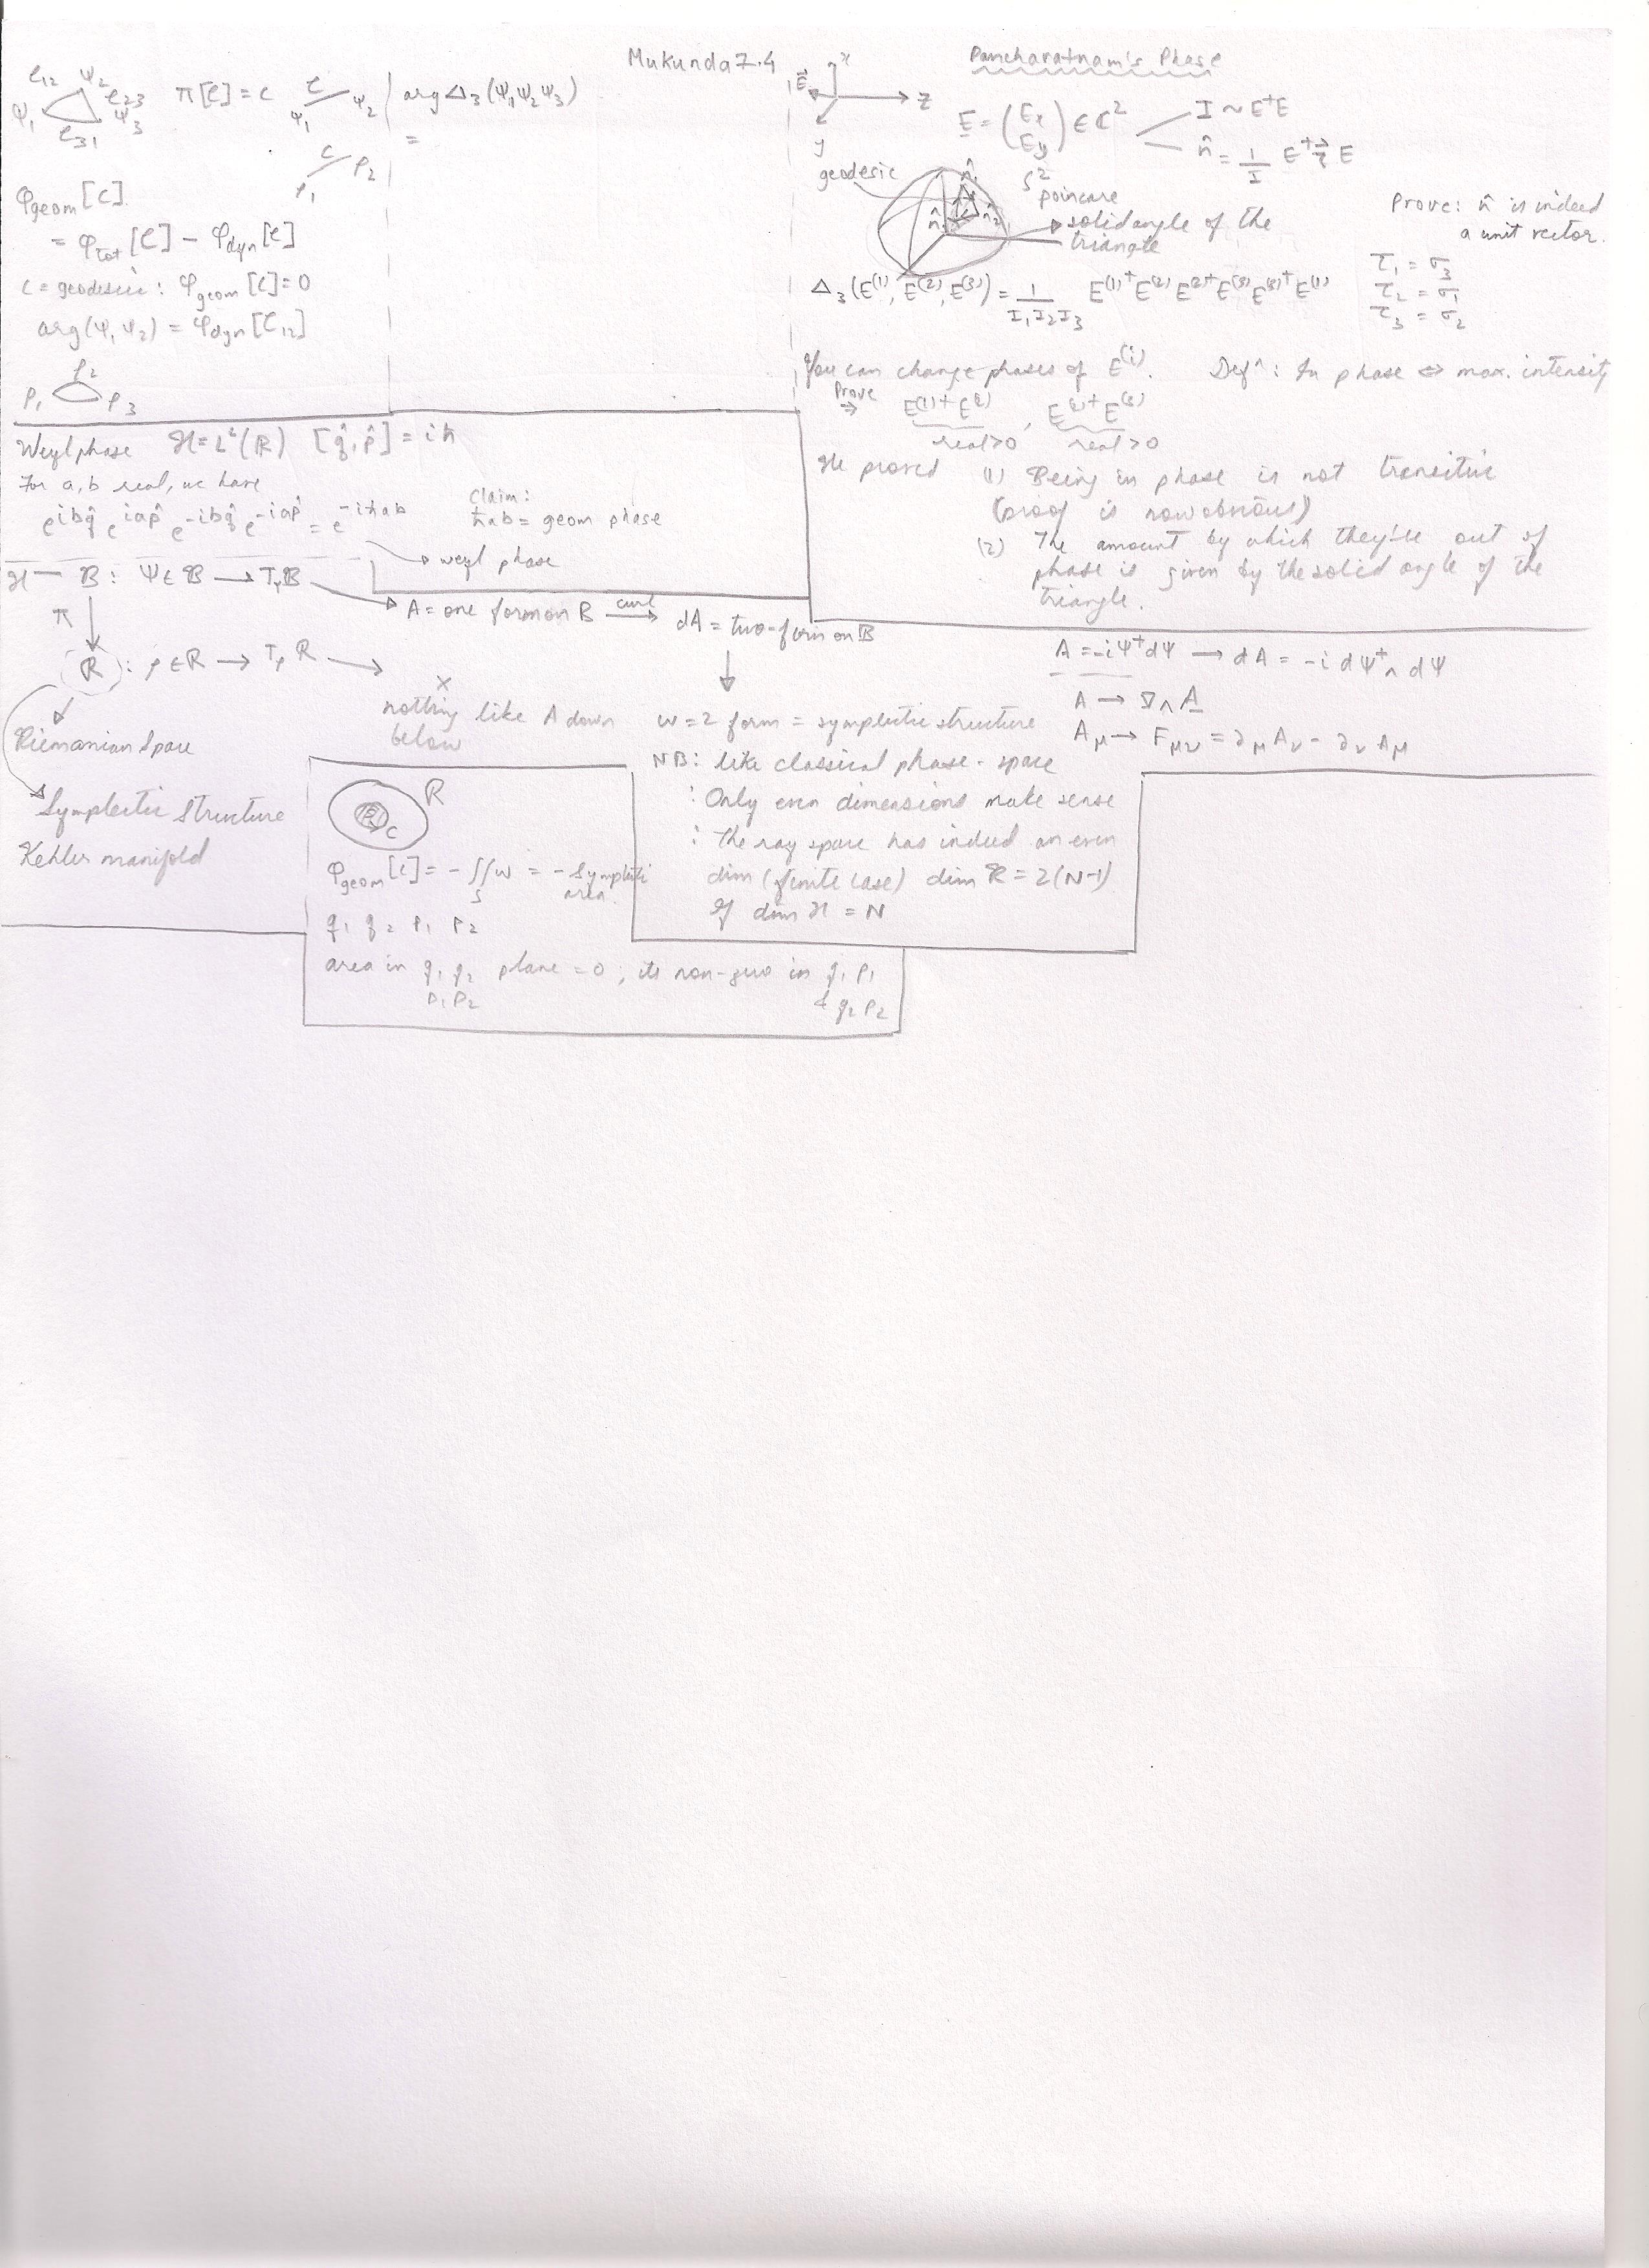 Mukunda 7.4
𝒞₁₂ Ψ₂
𝒞₂₃
Ψ₁ Ψ₃
𝒞₃₁
π[𝒞] = C
𝒞
Ψ₁ Ψ₂
C
ρ₁ ρ₂
arg Δ₃(Ψ₁Ψ₂Ψ₃)
=
φgeom[C]
= φtot[𝒞] − φdyn[𝒞]
C = geodesic : φgeom[C] = 0
arg(Ψ₁Ψ₂) = φdyn[𝒞₁₂]
ρ₂
ρ₁ ρ₃
Pancharatnam's Phase
x
E⃗
z
y
E = (Ex Ey) ∈ ℂ²
I ~ E†E
n̂ = 1/I E†τ⃗ E
geodesic
n̂₁
n̂ n̂₂
S²
poincare
solid angle of the
triangle
Prove: n̂ is indeed
a unit vector.
τ₁ = σ₃
τ₂ = σ₁
τ₃ = σ₂
Δ₃(E⁽¹⁾, E⁽²⁾, E⁽³⁾) = 1/I₁I₂I₃ E⁽¹⁾†E⁽²⁾E⁽²⁾†E⁽³⁾E⁽³⁾†E⁽¹⁾
You can change phases of E⁽ⁱ⁾. Defⁿ: In phase ⇔ max. intensity
Prove
⇒ E⁽¹⁾†E⁽²⁾, E⁽²⁾†E⁽³⁾
real>0 real>0
He proved (1) Being in phase is not transitive
(proof is now obvious)
(2) The amount by which they're out of
phase is given by the solid angle of the
triangle.
Weyl phase ℋ = L²(ℝ) [q̂, p̂] = iħ
For a, b real, we have
e^{ibq̂} e^{iap̂} e^{-ibq̂} e^{-iap̂} = e^{-iħab}
Claim:
ħab = geom phase
weyl phase
ℋ — 𝔹 : Ψ ∈ 𝔹 → TΨ𝔹
A = one form on B curl→ dA = two-form on 𝔹
π
ℛ : ρ ∈ ℛ → Tρ ℛ →
×
nothing like A down
below
Riemanian Space
Symplectic Structure
Kehler manifold
ω = 2 form = symplectic structure
NB: like classical phase-space
: Only even dimensions make sense
: The ray space has indeed an even
dim (finite case) dim ℛ = 2(N-1)
if dim ℋ = N
A = -iΨ†dΨ → dA = -i dΨ†∧ dΨ
A → ∇∧A
Aμ → Fμν = ∂μAν - ∂νAμ
ℛ
C
φgeom[C] = -∬ω = -symplectic
S area.
q₁ q₂ p₁ p₂
area in q₁ q₂ plane = 0 ; its non-zero in q₁ p₁
p₁ p₂ & q₂ p₂